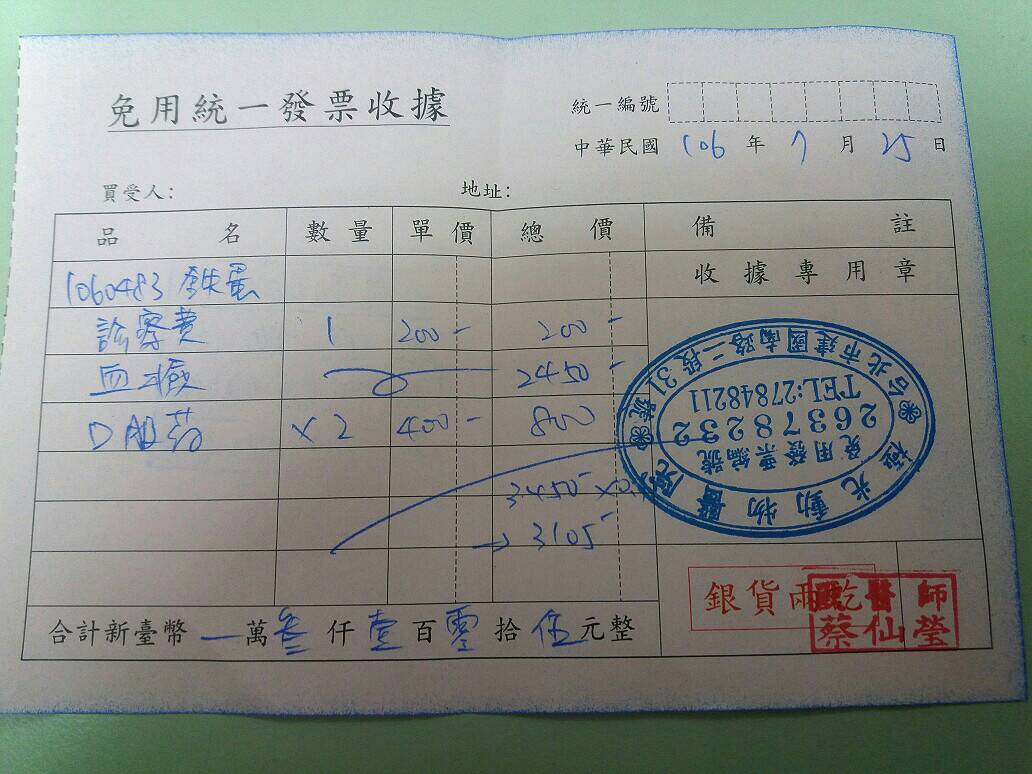 免用統一發票收據
統一編號
中華民國 106 年 7 月 25 日
買受人： 地址：
品名 數量 單價 總價 備註
收據專用章
1060483 鐵蛋
診察費 1 200- 200-
血檢 2450-
×2 400- 800
3450- ×0.
→ 3105-
合計新臺幣 一萬叁仟壹百零拾伍元整
極光動物醫院
免用發票編號
26378232
TEL:27848211
台北市建國南路二段31號
銀貨兩訖
獸醫師
蔡仙瑩